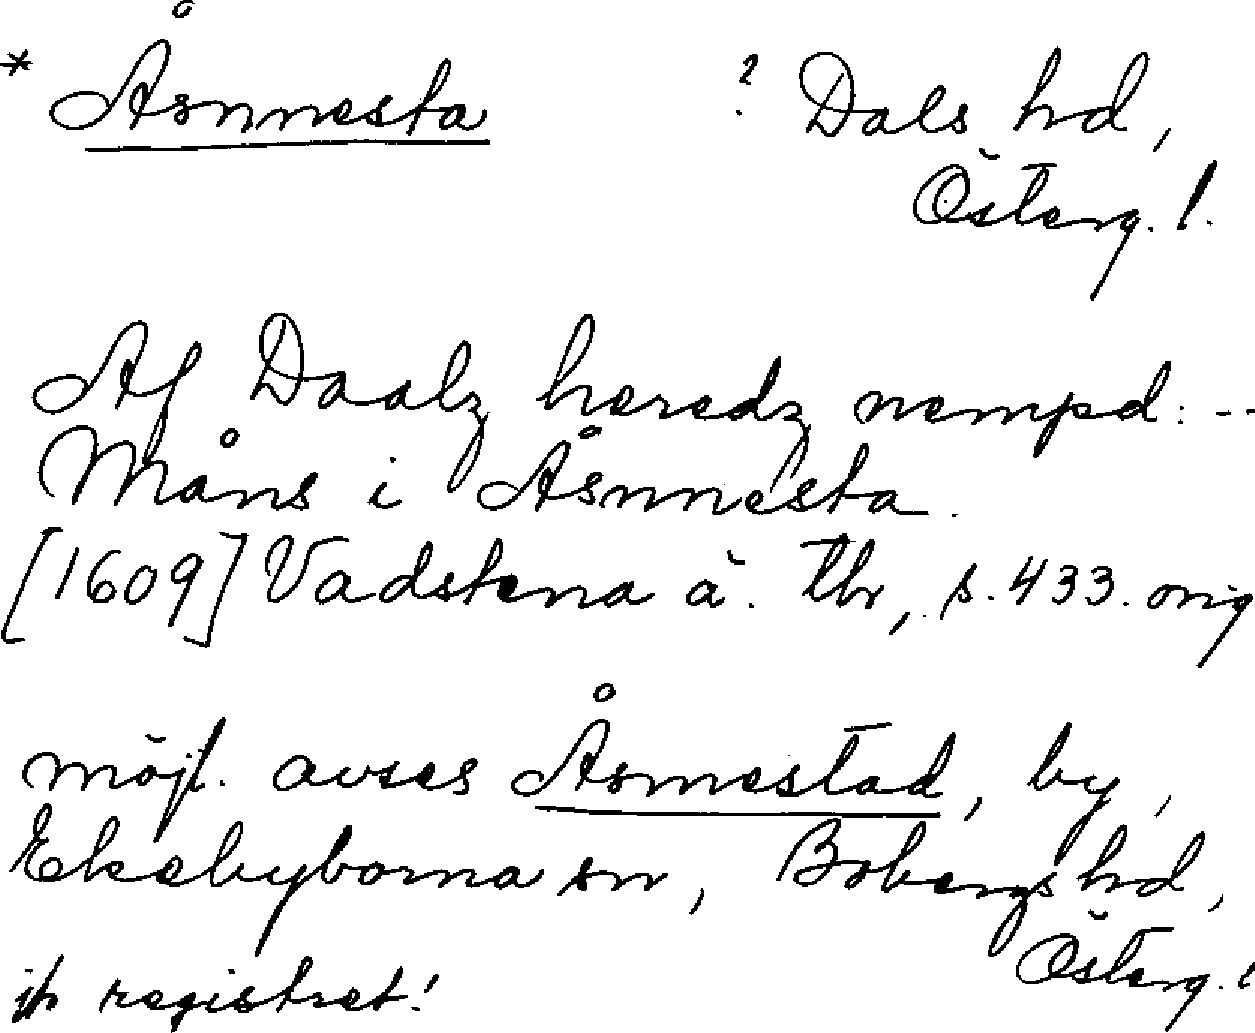 * Åsnnesta ? Dals hd,
Österg. l.
Af Daalz heredz nempd: --
Måns i Åsnnesta.
[1609] Vadstena ä. tbr, s. 433. orig
möjl. avses Åsmestad, by,
Ekebyborna sn, Bobergs hd,
Österg. l
jfr registret!